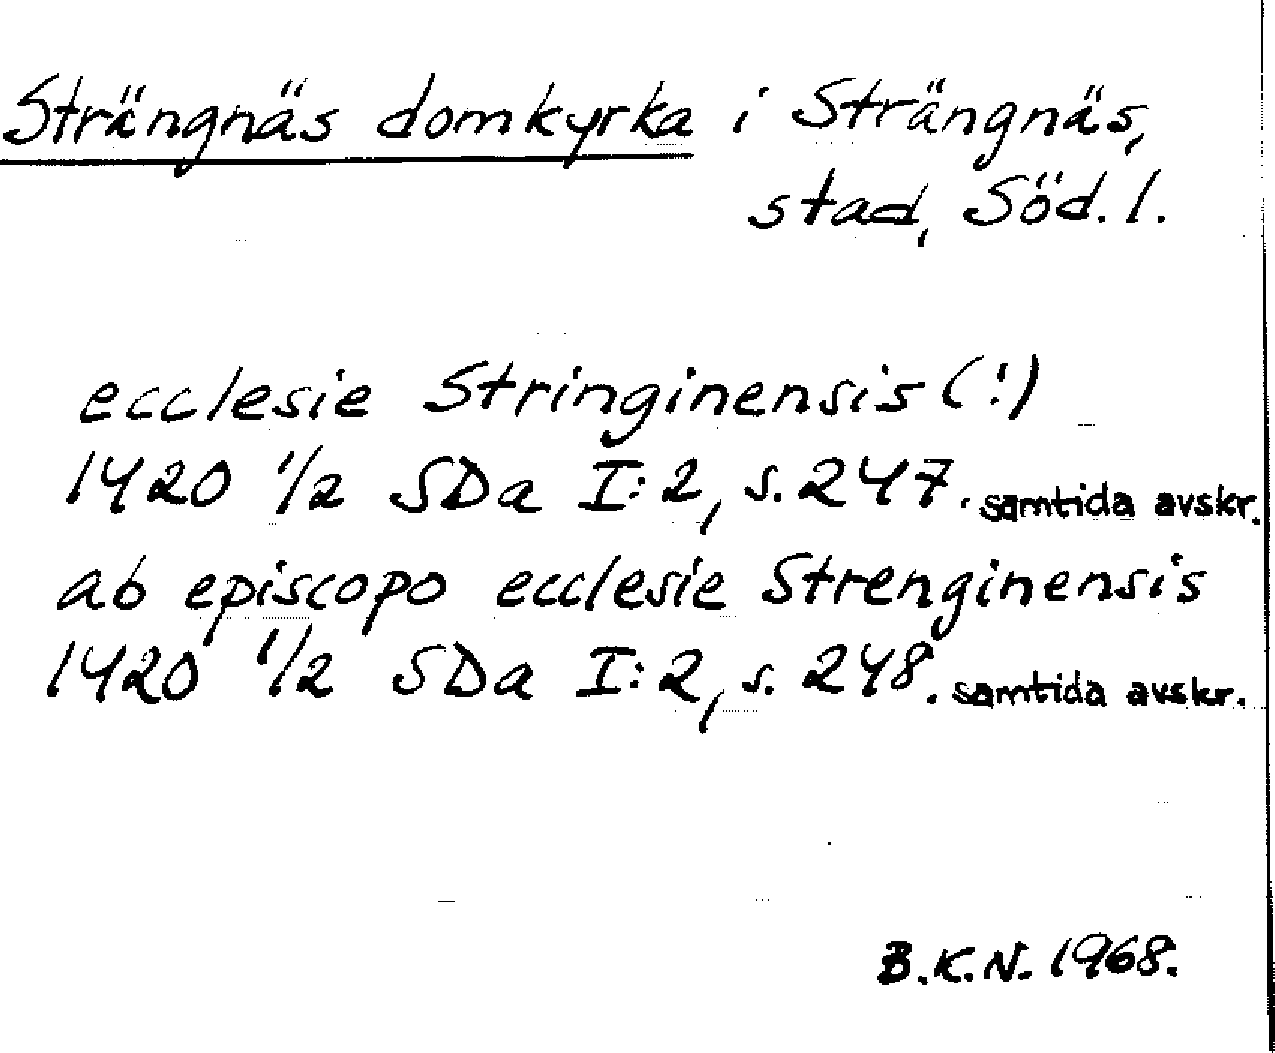 Strängnäs domkyrka i Strängnäs,
stad, Söd. l.
ecclesie Stringinensis (!)
1420 1/2 SDa I:2, s. 247. samtida avskr.
ab episcopo ecclesie Strenginensis
1420 1/2 SDa I:2, s. 248. samtida avskr.
B.K.N. 1968.